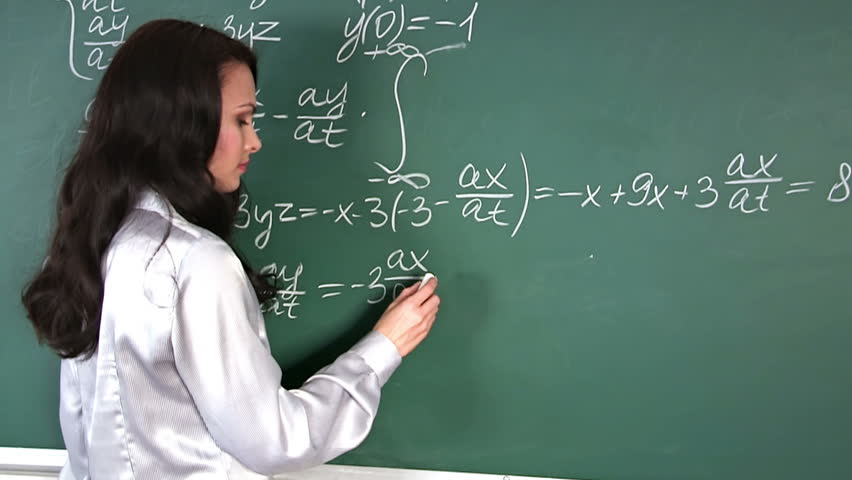 at
ay/a 3yz y(0)=-1
- ay/at · ∫ +∞ -∞
3yz=-x-3(-3-ax/at)=-x+9x+3 ax/at=8
ay/at=-3 ax